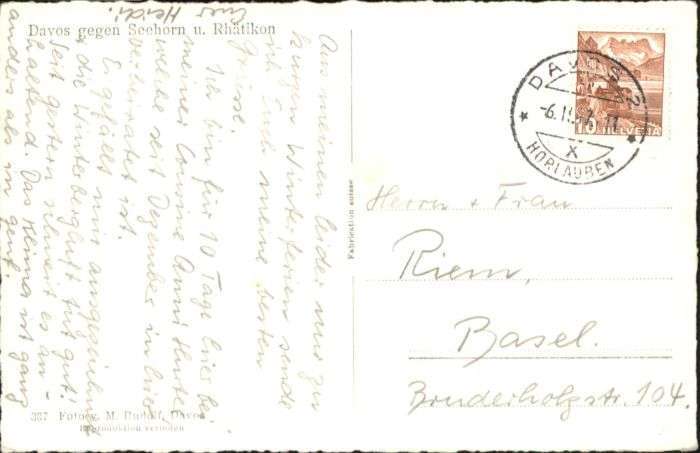 Davos gegen Seehorn u. Rhätikon
Aus meinen leider nur zu
kurzen Winterferien sende
ich Euch meine besten
Grüsse.
Ich bin für 10 Tage hier bei
meiner Cousine Anni
welche seit Dezember in hier
verheiratet ist.
Es gefällt mir ausgezeichnet
& die Winterbergluft tut gut!
Seit gestern schneit es an-
haltend. Das Klima ist ganz
anders als im
Euer Heidi.
367 Fotogr. M. Rudolf, Davos
Reproduktion verboten
Fabrication suisse
DAVOS 2
HORLAUBEN
X
10 HELVETIA
Herrn & Frau
Riem,
Basel.
Bruderholzstr. 104.